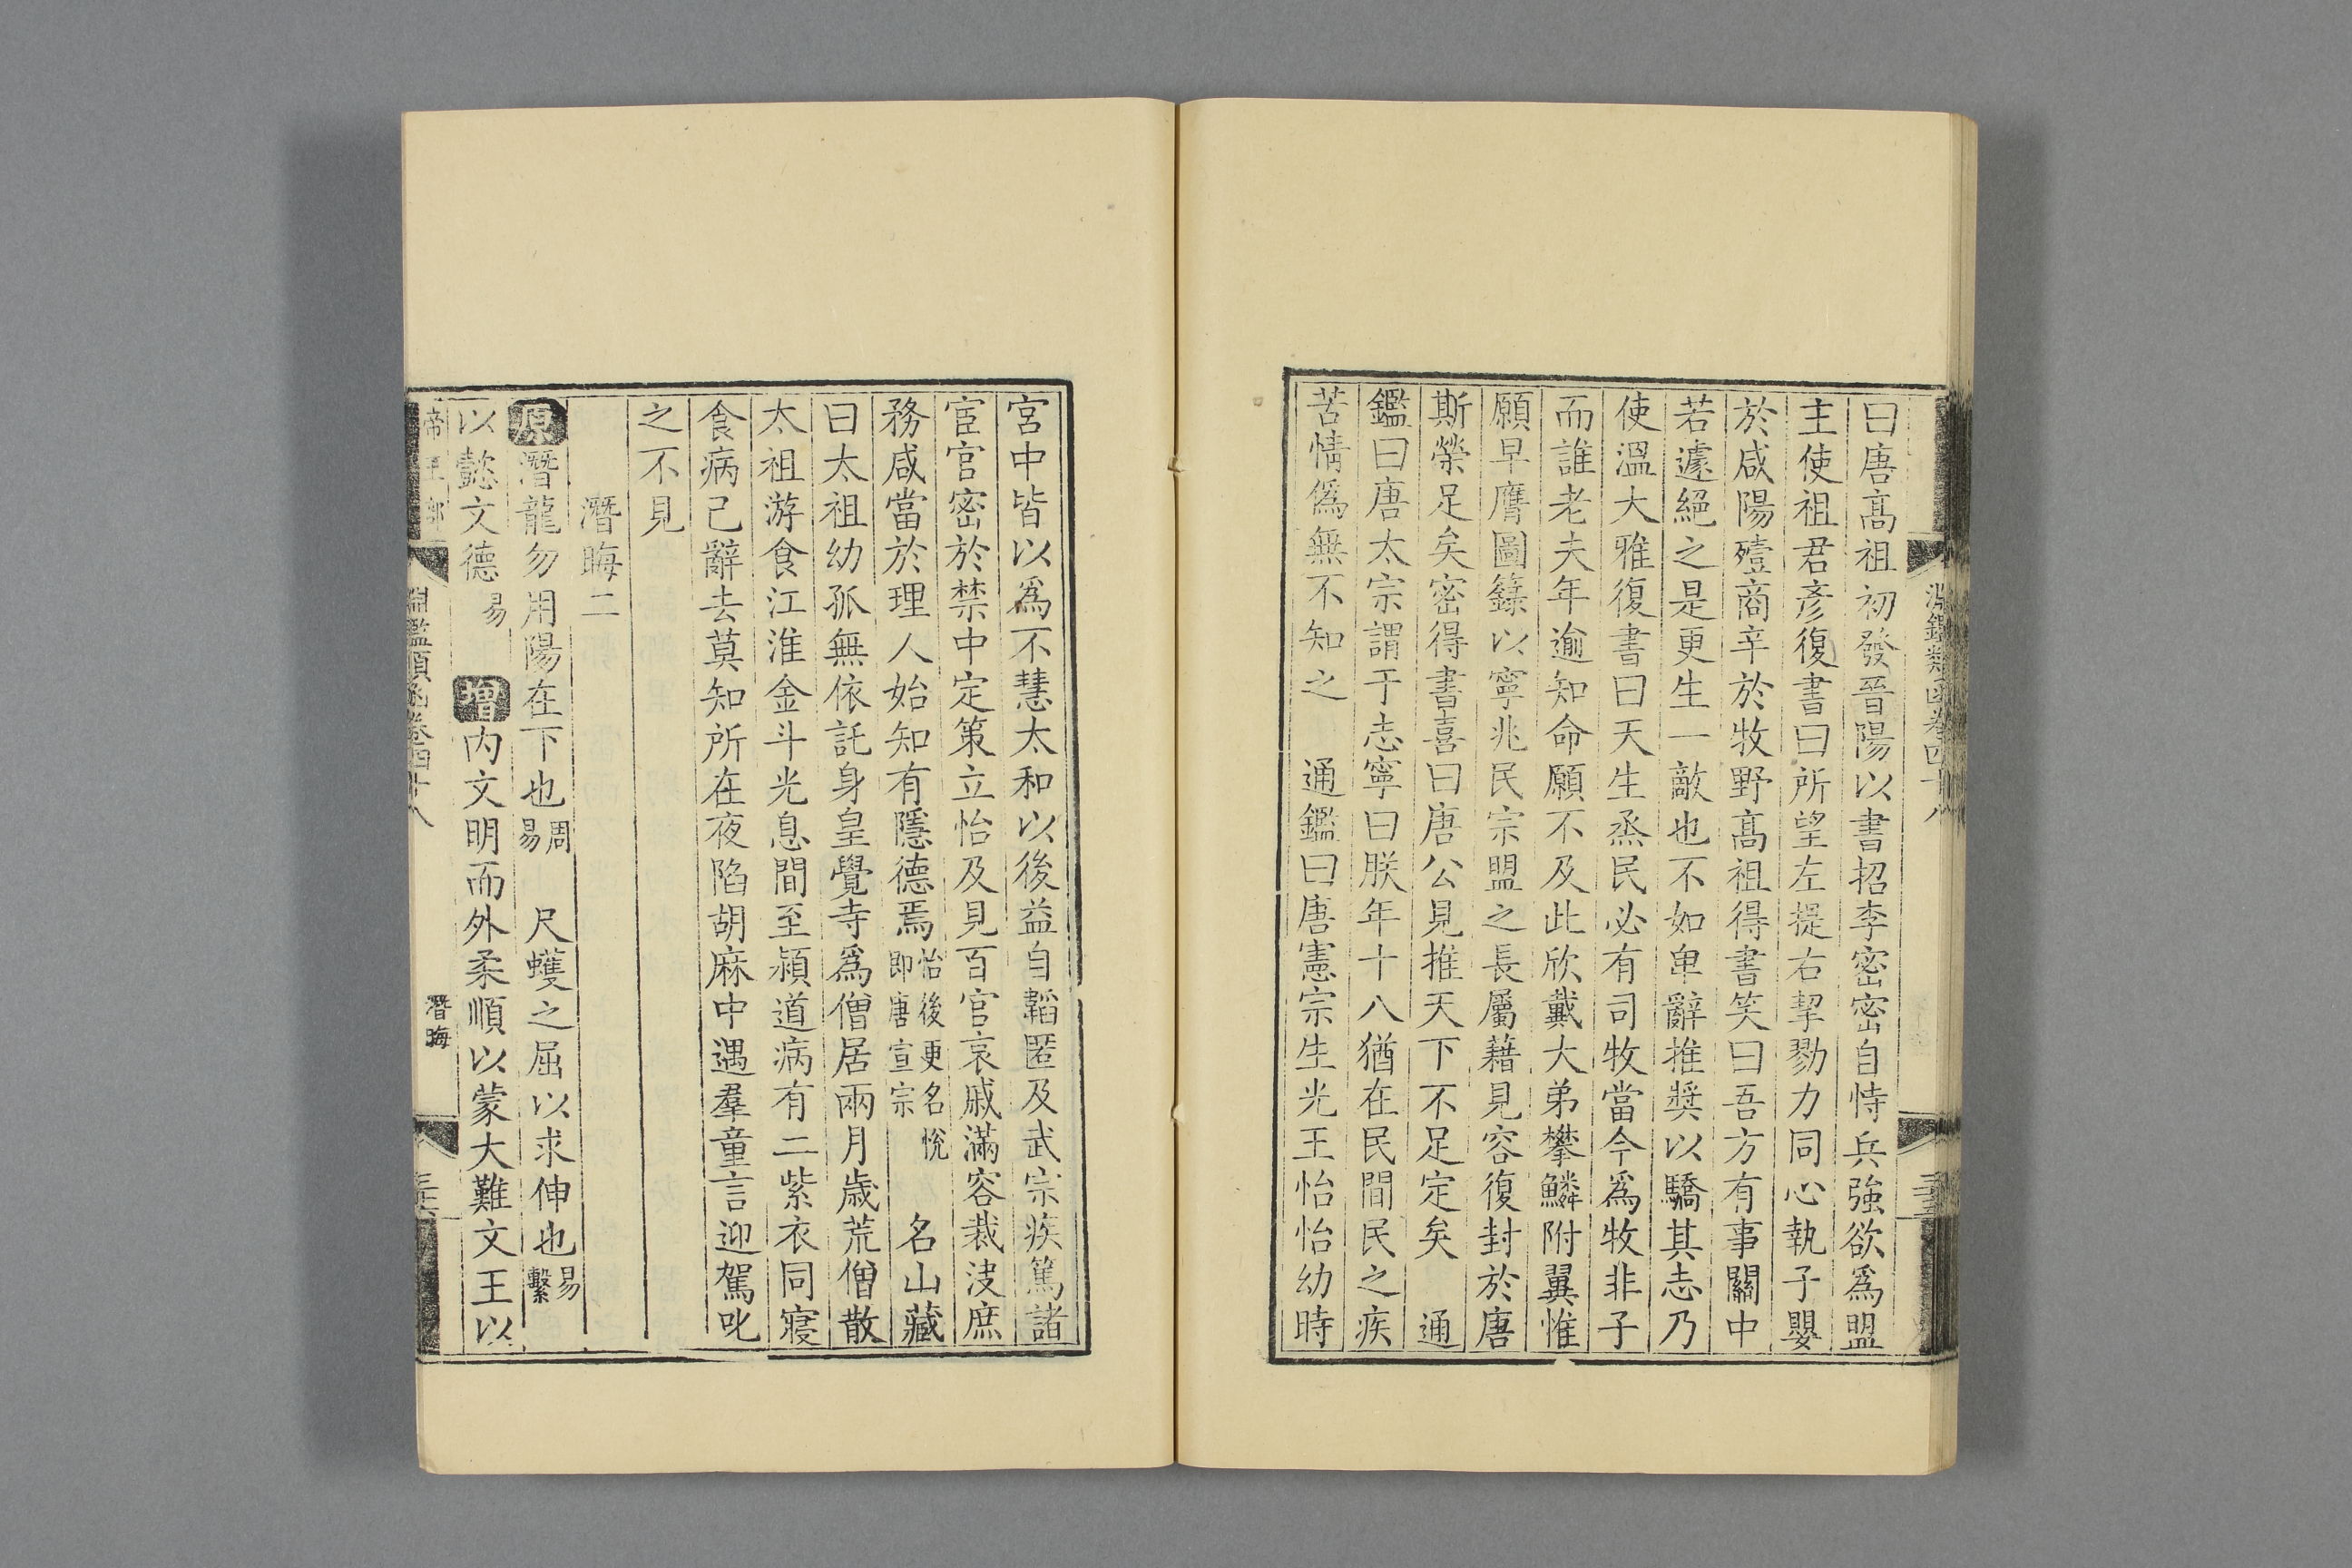 淵鑑類函卷四十八
曰唐髙祖初發晉陽以書招李密密自恃兵強欲爲盟
主使祖君彦復書曰所望左提右挈勠力同心執子嬰
於咸陽殪商辛於牧野髙祖得書笑曰吾方有事關中
若遽絕之是更生一敵也不如卑辭推奬以驕其志乃
使溫大雅復書曰天生烝民必有司牧當今爲牧非子
而誰老夫年逾知命願不及此欣戴大弟攀鱗附翼惟
願早膺圖籙以寧兆民宗盟之長屬籍見容復封於唐
斯榮足矣密得書喜曰唐公見推天下不足定矣　通
鑑曰唐太宗謂于志寧曰朕年十八猶在民間民之疾
苦情僞無不知之　通鑑曰唐憲宗生光王怡怡幼時
宮中皆以爲不慧太和以後益自韜匿及武宗疾篤諸
宦官密於禁中定策立怡及見百官哀戚滿容裁決庶
務咸當於理人始知有隱德焉怡後更名恱即唐宣宗　名山藏
曰太祖幼孤無依託身皇覺寺爲僧居兩月歳荒僧散
太祖游食江淮金斗光息間至潁道病有二紫衣同寢
食病已辭去莫知所在夜陷胡麻中遇羣童言迎駕叱
之不見
潛晦二
原潛龍勿用陽在下也周易　尺蠖之屈以求伸也易繫
以懿文德易　增內文明而外柔順以蒙大難文王以
帝王部
淵鑑類函卷四十八
潛晦